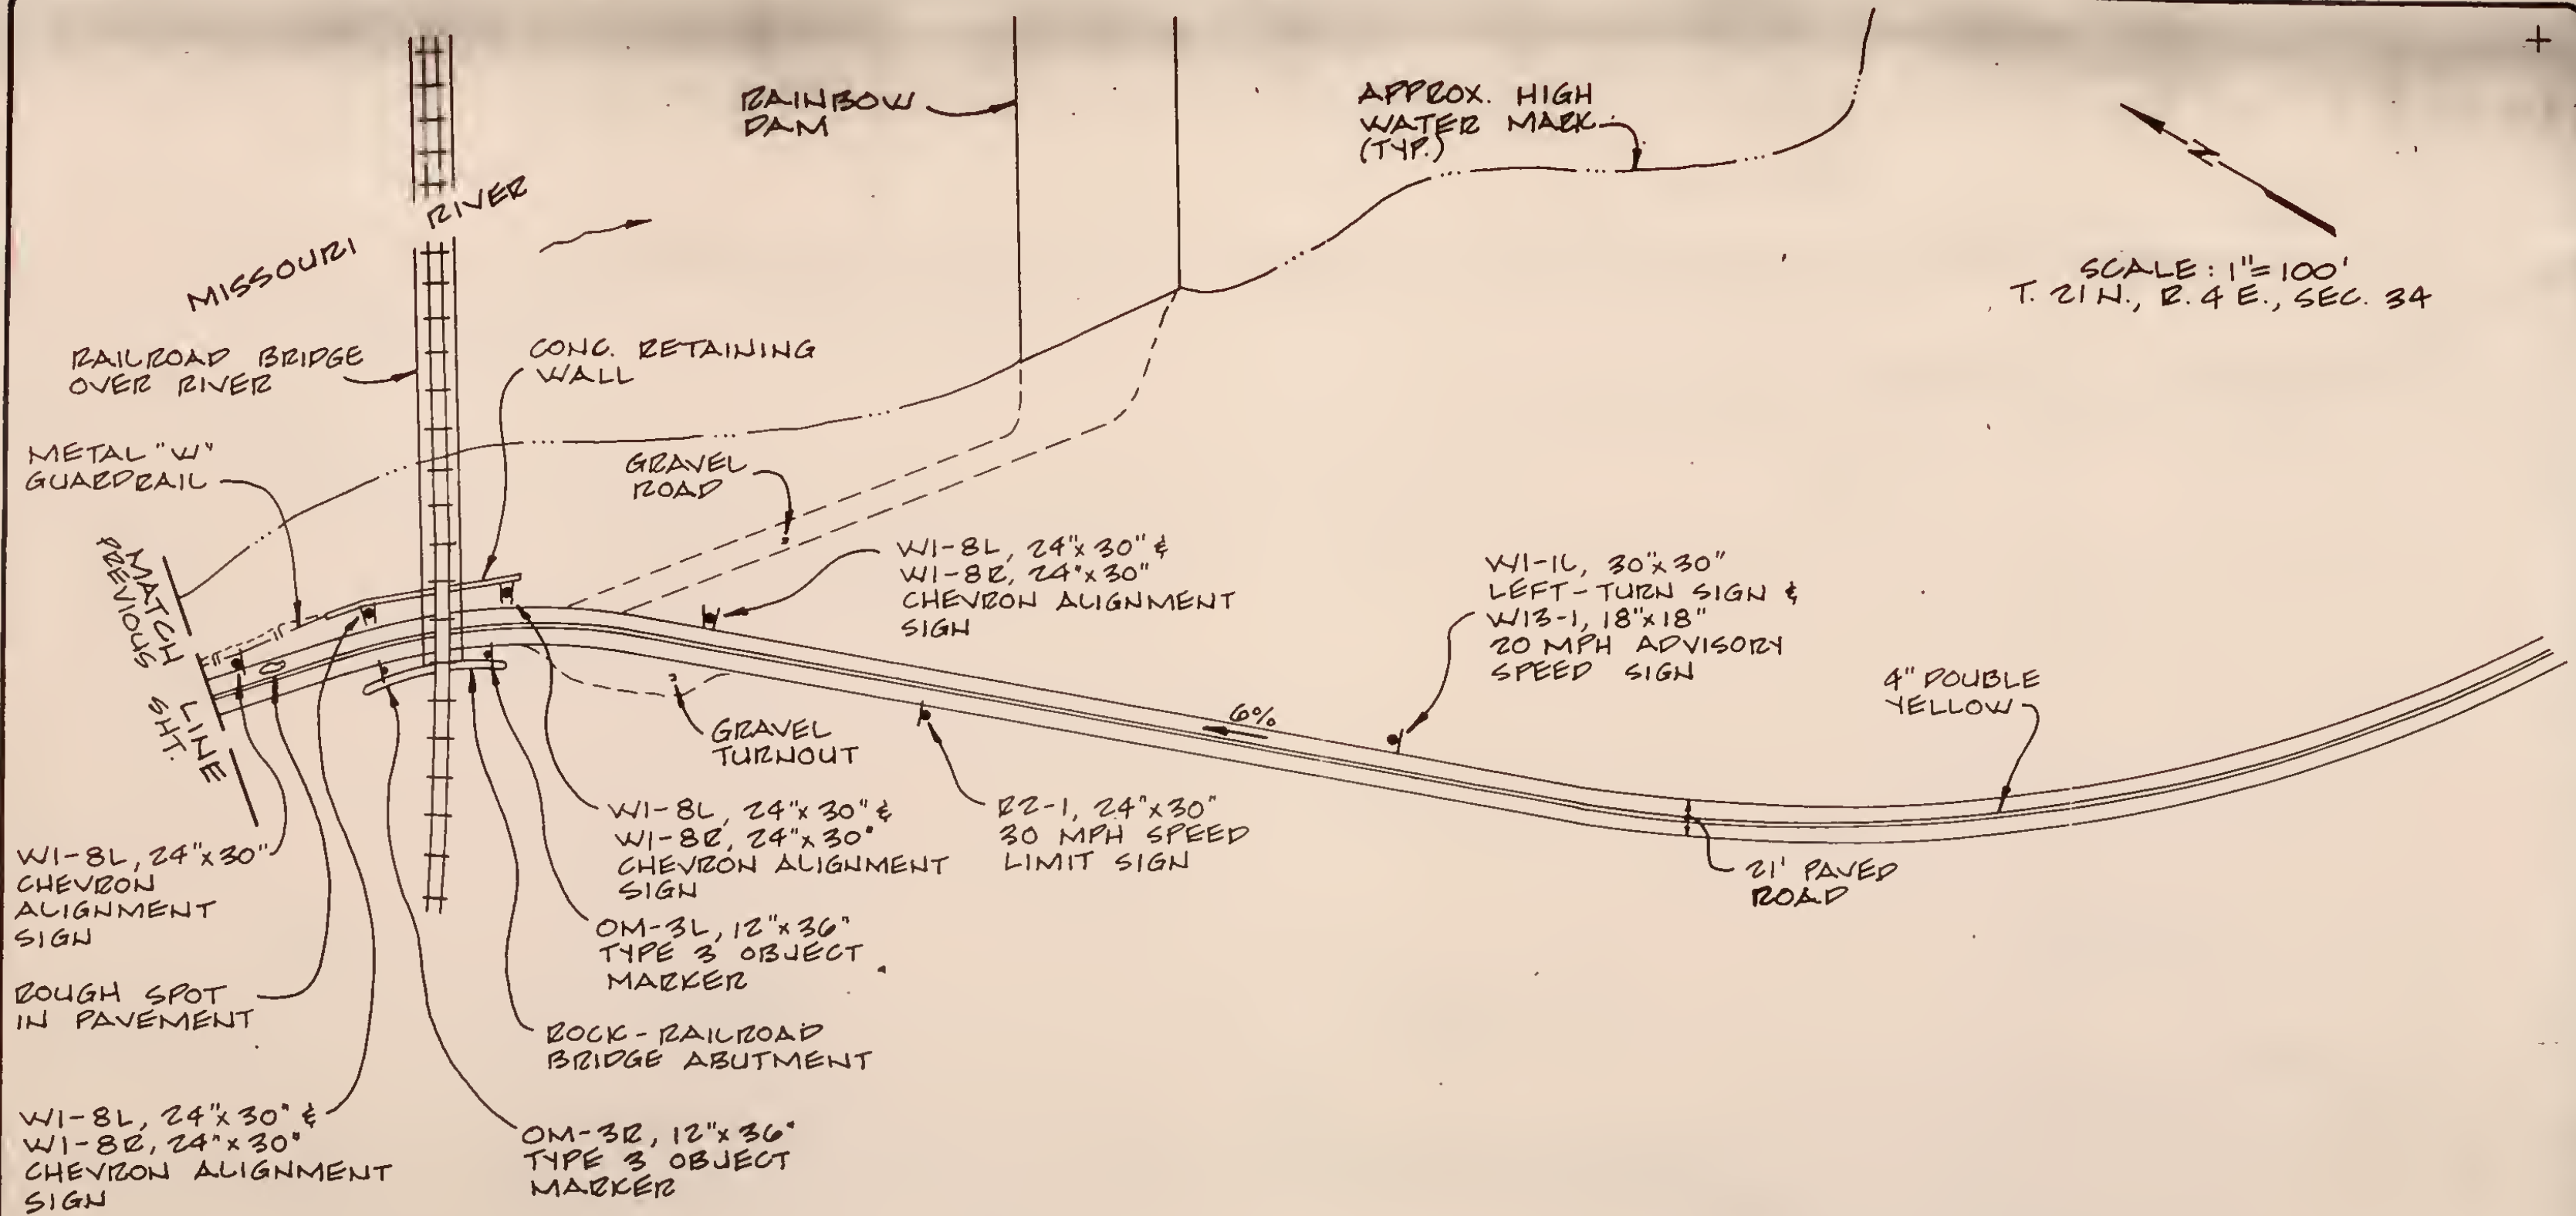 RAINBOW
DAM
APPROX. HIGH
WATER MARK
(TYP.)
N
SCALE: 1"=100'
T. 21 N., R. 4 E., SEC. 34
MISSOURI RIVER
RAILROAD BRIDGE
OVER RIVER
CONC. RETAINING
WALL
METAL "W"
GUARDRAIL
GRAVEL
ROAD
MATCH LINE
PREVIOUS SHT.
W1-8L, 24"x30" &
W1-8R, 24"x30"
CHEVRON ALIGNMENT
SIGN
W1-1L, 30"x30"
LEFT-TURN SIGN &
W13-1, 18"x18"
20 MPH ADVISORY
SPEED SIGN
4" DOUBLE
YELLOW
6%
GRAVEL
TURNOUT
W1-8L, 24"x30" &
W1-8R, 24"x30"
CHEVRON ALIGNMENT
SIGN
R2-1, 24"x30"
30 MPH SPEED
LIMIT SIGN
21' PAVED
ROAD
W1-8L, 24"x30"
CHEVRON
ALIGNMENT
SIGN
OM-3L, 12"x36"
TYPE 3 OBJECT
MARKER
ROUGH SPOT
IN PAVEMENT
ROCK-RAILROAD
BRIDGE ABUTMENT
W1-8L, 24"x30" &
W1-8R, 24"x30"
CHEVRON ALIGNMENT
SIGN
OM-3R, 12"x36"
TYPE 3 OBJECT
MARKER